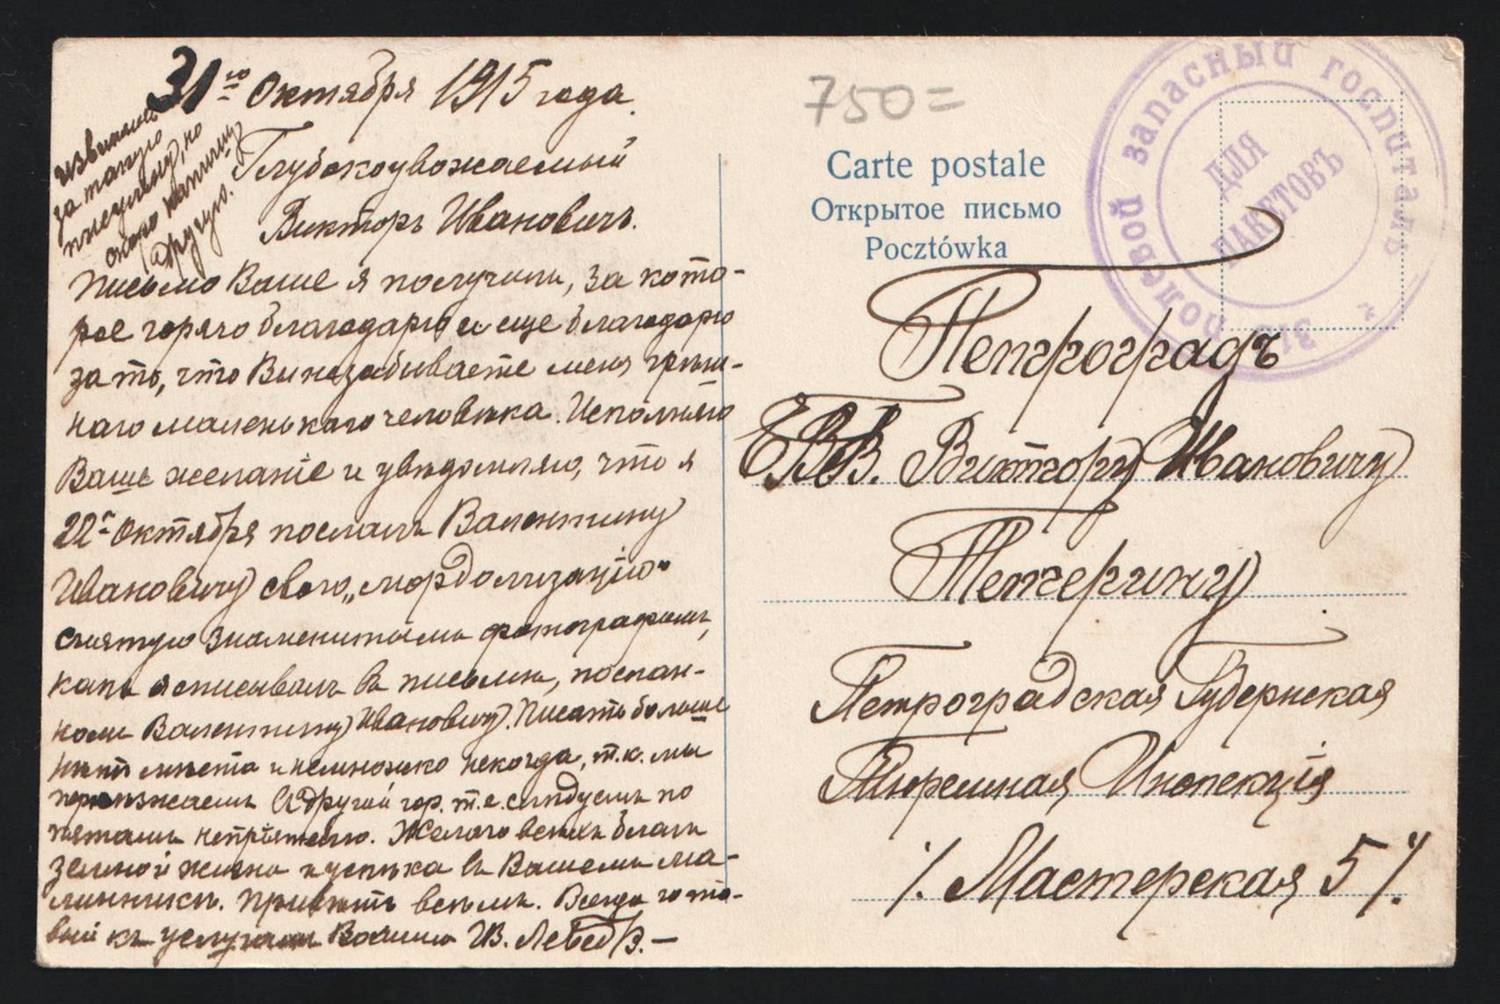 31го Октября 1915 года.
Извиняюсь
за такую
писульку, но
скоро напишу
другую.
Глубокоуважаемый
Викторъ Ивановичъ.
Письмо Ваше я получилъ, за кото-
рое горячо благодарю и еще благодарю
за то, что Вы незабываете меня грѣш-
наго маленькаго человѣка. Исполняю
Ваше желаніе и увѣдомляю, что я
22го Октября послалъ Валентину
Ивановичу свою „мордолизацію"
снятую знаменитымъ фотографомъ,
какъ я описывалъ въ письмѣ, послан-
номъ Валентину Ивановичу. Писать больше
нѣтъ мѣста и немножко некогда, т.к. мы
переѣзжаемъ въ другой гор. т.е. слѣдуемъ по
пятамъ непріятелю. Желаю всѣхъ благъ
земной жизни и успѣха въ Вашемъ ма-
Привѣтъ всѣмъ. Всегда гото-
вый къ услугамъ Вашимъ Ив. Лебед
750=
Carte postale
Открытое письмо
Pocztówka
полевой запасный госпиталь
ДЛЯ
ПАКЕТОВЪ
Петроградъ
Е.В.В. Виктору Ивановичу
Тетерину
Петроградская Губернская
Тюремная Инспекція
/. Мастерская 5 /.